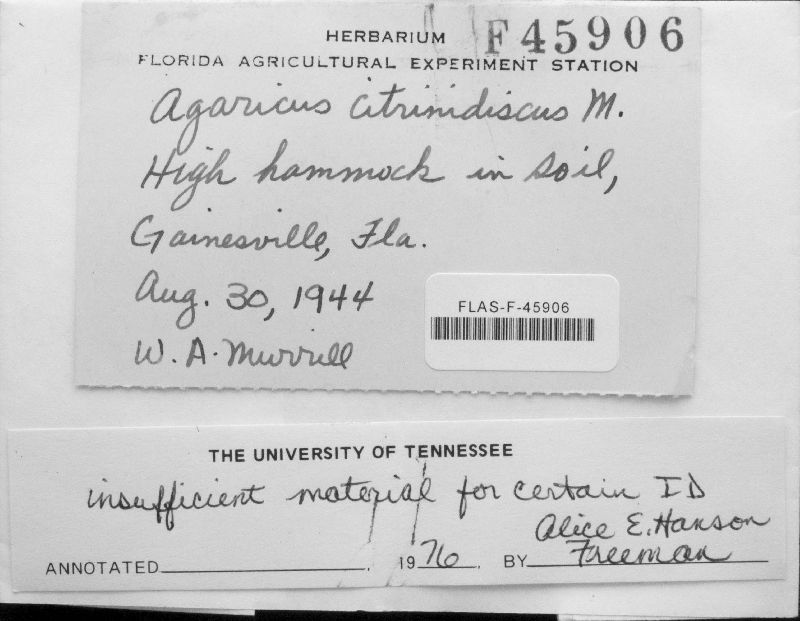 HERBARIUM F45906
FLORIDA AGRICULTURAL EXPERIMENT STATION
Agaricus citrinidiscus M.
High hammock in soil,
Gainesville, Fla.
Aug. 30, 1944
W. A. Murrill
FLAS-F-45906
THE UNIVERSITY OF TENNESSEE
insufficient material for certain ID
Alice E. Hanson
ANNOTATED , 1976 , BY Freeman